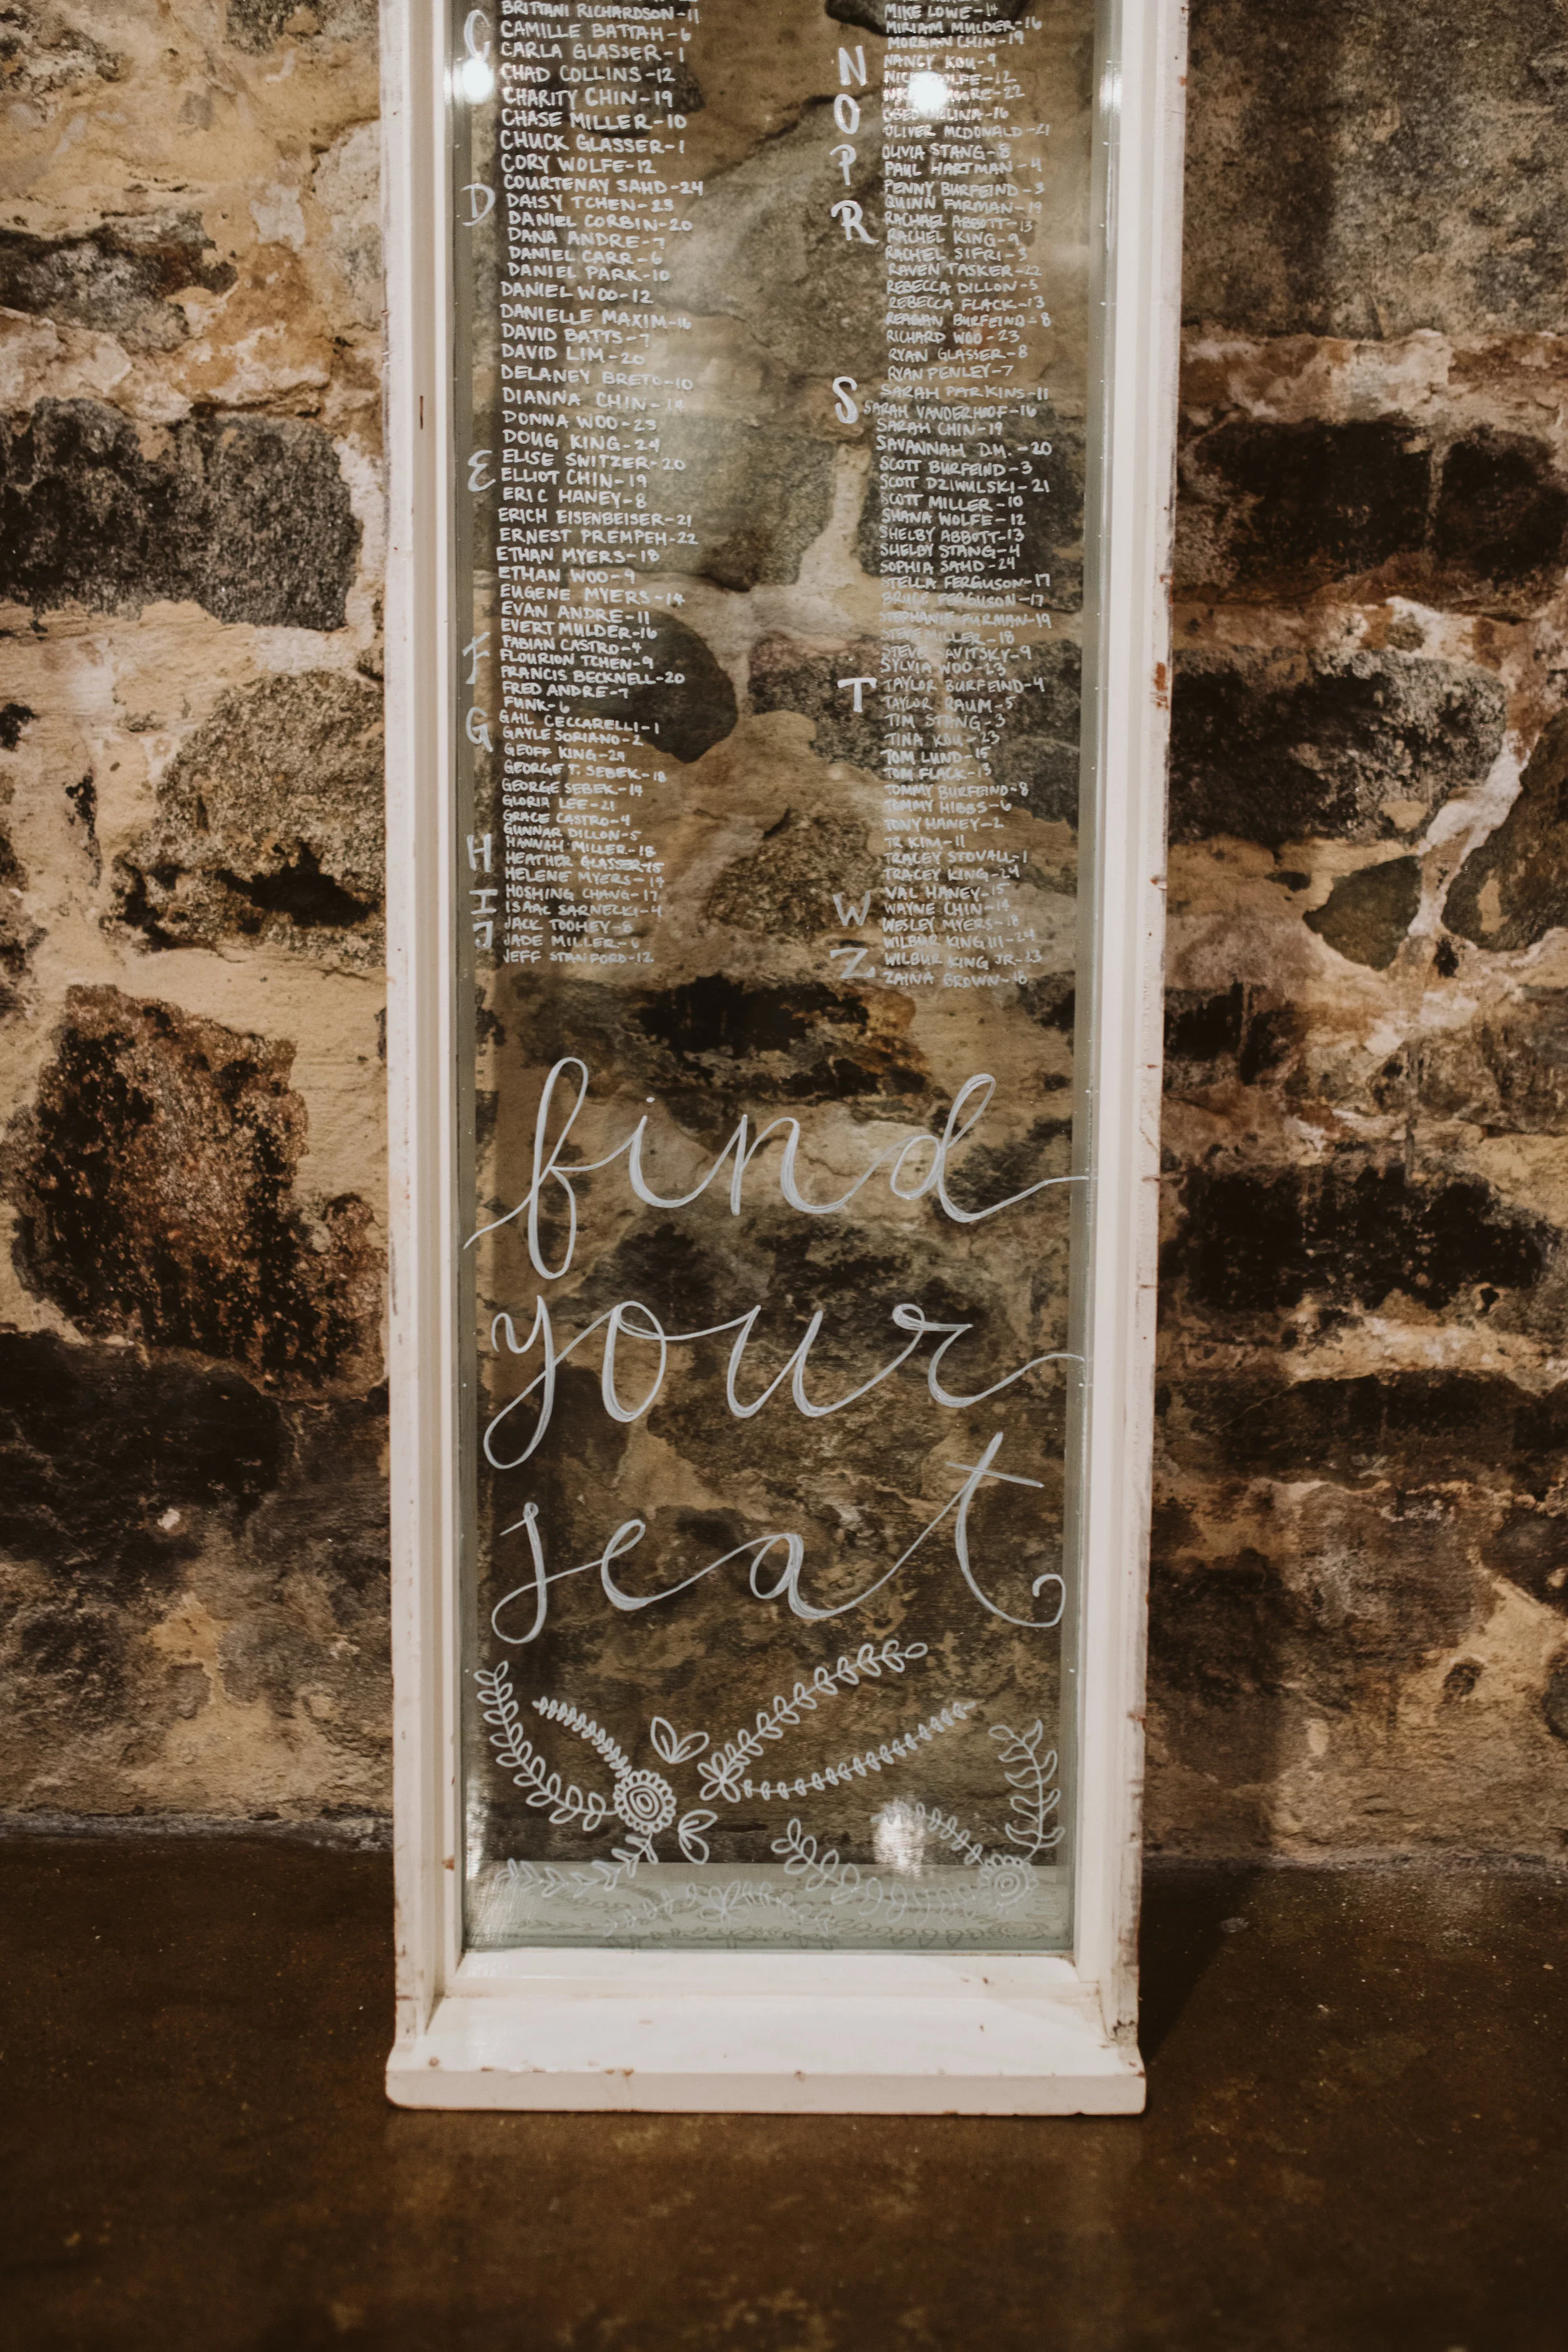 BRITTANI RICHARDSON-11
C
CAMILLE BATTAH-6
CARLA GLASSER-1
CHAD COLLINS-12
CHARITY CHIN-19
CHASE MILLER-10
CHUCK GLASSER-1
CORY WOLFE-12
COURTENAY SAHD-24
D
DAISY TCHEN-23
DANIEL CORBIN-20
DANA ANDRE-7
DANIEL CARR-6
DANIEL PARK-10
DANIEL WOO-12
DANIELLE MAXIM-16
DAVID BATTS-7
DAVID LIM-20
DELANEY BRETO-10
DIANNA CHIN-14
DONNA WOO-23
DOUG KING-24
E
ELISE SWITZER-20
ELLIOT CHIN-19
ERIC HANEY-8
ERICH EISENBEISER-21
ERNEST PREMPEH-22
ETHAN MYERS-18
ETHAN WOO-9
EUGENE MYERS-14
EVAN ANDRE-11
EVERT MULDER-16
F
FABIAN CASTRO-4
FLOURION TCHEN-9
FRANCIS BECKNELL-20
FRED ANDRE-7
FUNK-6
G
GAIL CECCARELLI-1
GAYLE SORIANO-2
GEOFF KING-24
GEORGE T. SEBEK-18
GEORGE SEBEK-14
GLORIA LEE-21
GRACE CASTRO-4
GUNNAR DILLON-5
H
HANNAH MILLER-18
HEATHER GLASSER-15
HELENE MYERS-14
HOSHING CHANG-17
I
ISAAC SARNECKI-4
J
JACK TOOHEY-8
JADE MILLER-6
JEFF STANFORD-12
MIKE LOWE-14
MIRIAM MULDER-16
MORGAN CHIN-19
N
NANCY KOU-9
NICK WOLFE-12
O
OLIVER MCDONALD-21
OLIVIA STANG-8
P
PAUL HARTMAN-4
PENNY BURFEIND-3
QUINN FURMAN-19
R
RACHAEL ABBOTT-13
RACHEL KING-9
RACHEL SIFRI-3
RAVEN TASKER-22
REBECCA DILLON-5
REBECCA FLACK-13
REAGAN BURFEIND-8
RICHARD WOO-23
RYAN GLASSER-8
RYAN PENLEY-7
S
SARAH PARKINS-11
SARAH VANDERHOOF-16
SARAH CHIN-19
SAVANNAH D.M.-20
SCOTT BURFEIND-3
SCOTT DZIWULSKI-21
SCOTT MILLER-10
SHANA WOLFE-12
SHELBY ABBOTT-13
SHELBY STANG-4
SOPHIA SAHD-24
STELLA FERGUSON-17
BRUCE FERGUSON-17
STEPHANIE FURMAN-19
STEVE MILLER-18
STEVE SAVITSKY-9
SYLVIA WOO-23
T
TAYLOR BURFEIND-4
TAYLOR RAUM-5
TIM STANG-3
TINA KOU-23
TOM LUND-15
TOM FLACK-13
TOMMY BURFEIND-8
TOMMY HIBBS-6
TONY HANEY-2
TR KIM-11
TRACEY STOVALL-1
TRACEY KING-24
VAL HANEY-15
W
WAYNE CHIN-14
WESLEY MYERS-18
WILBUR KING III-24
WILBUR KING JR-23
Z
ZAINA GROWN-18
find
your
seat